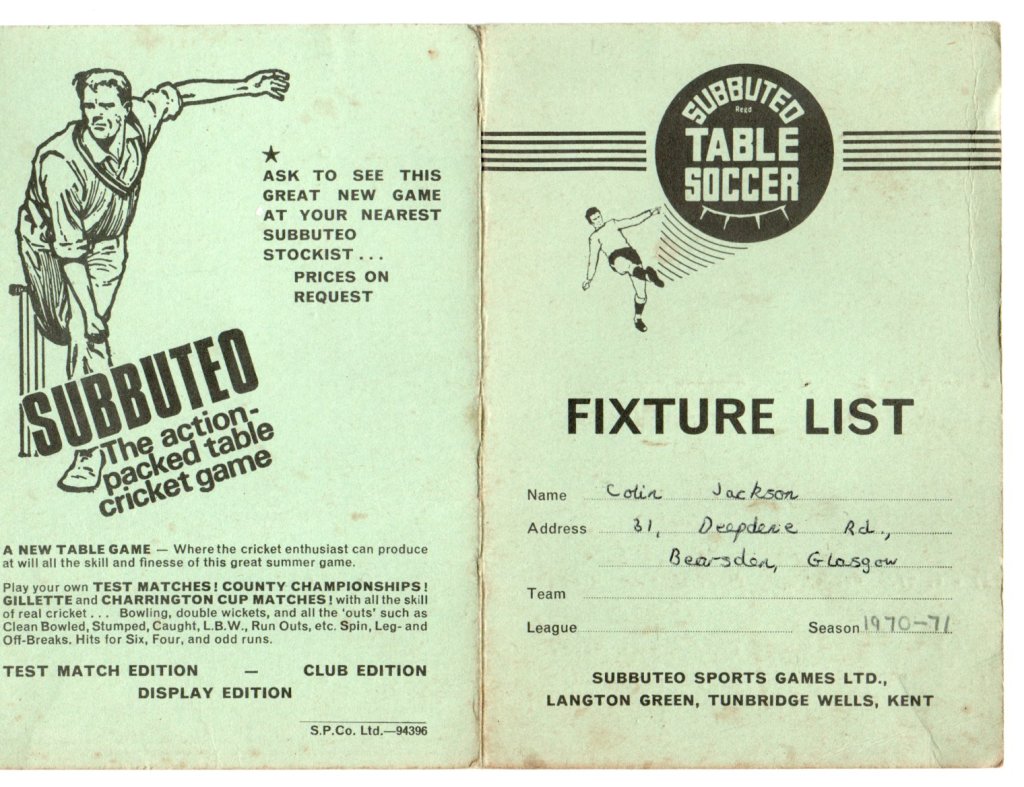 ★
ASK TO SEE THIS
GREAT NEW GAME
AT YOUR NEAREST
SUBBUTEO
STOCKIST...
PRICES ON
REQUEST
SUBBUTEO
The action-
packed table
cricket game
A NEW TABLE GAME — Where the cricket enthusiast can produce
at will all the skill and finesse of this great summer game.
Play your own TEST MATCHES! COUNTY CHAMPIONSHIPS!
GILLETTE and CHARRINGTON CUP MATCHES! with all the skill
of real cricket... Bowling, double wickets, and all the 'outs' such as
Clean Bowled, Stumped, Caught, L.B.W., Run Outs, etc. Spin, Leg- and
Off-Breaks. Hits for Six, Four, and odd runs.
TEST MATCH EDITION — CLUB EDITION
DISPLAY EDITION
S.P.Co. Ltd.—94396
SUBBUTEO
Regd
TABLE
SOCCER
FIXTURE LIST
Name Colin Jackson
Address 31, Deepdene Rd.,
Bearsden, Glasgow
Team
League Season 1970-71
SUBBUTEO SPORTS GAMES LTD.,
LANGTON GREEN, TUNBRIDGE WELLS, KENT